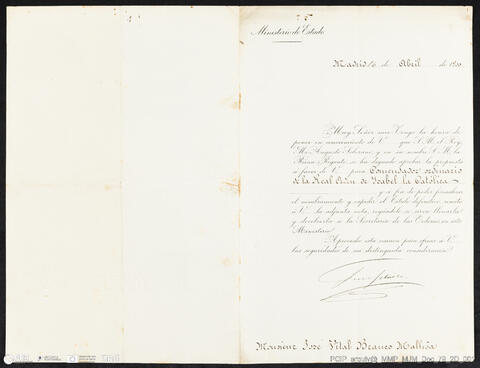 Ministerio de Estado
Madrid 16 de Abril de 1900
Muy Señor mio: Tengo la honra de
poner en conocimiento de V. que S. M. el Rey
(Mi Augusto Soberano) y en su nombre S. M. la
Reina Regente, se ha dignado aprobar la propuesta
á favor de V. para Comendador ordinario
de la Real Orden de Isabel la Católica
y á fin de poder formalizar
el nombramiento y expedir el Título definitivo, remito
á V. la adjunta nota, rogándole se sirva llenarla y
devolverla á la Secretaría de las Ordenes, en este
Ministerio.
Aprovecho esta ocasion para ofrecer á V.
las seguridades de mi distinguida consideracion.
Monsieur José Vital Branco Malhôa
PCIP arquivo MMP MJM Doc 79 2D 001